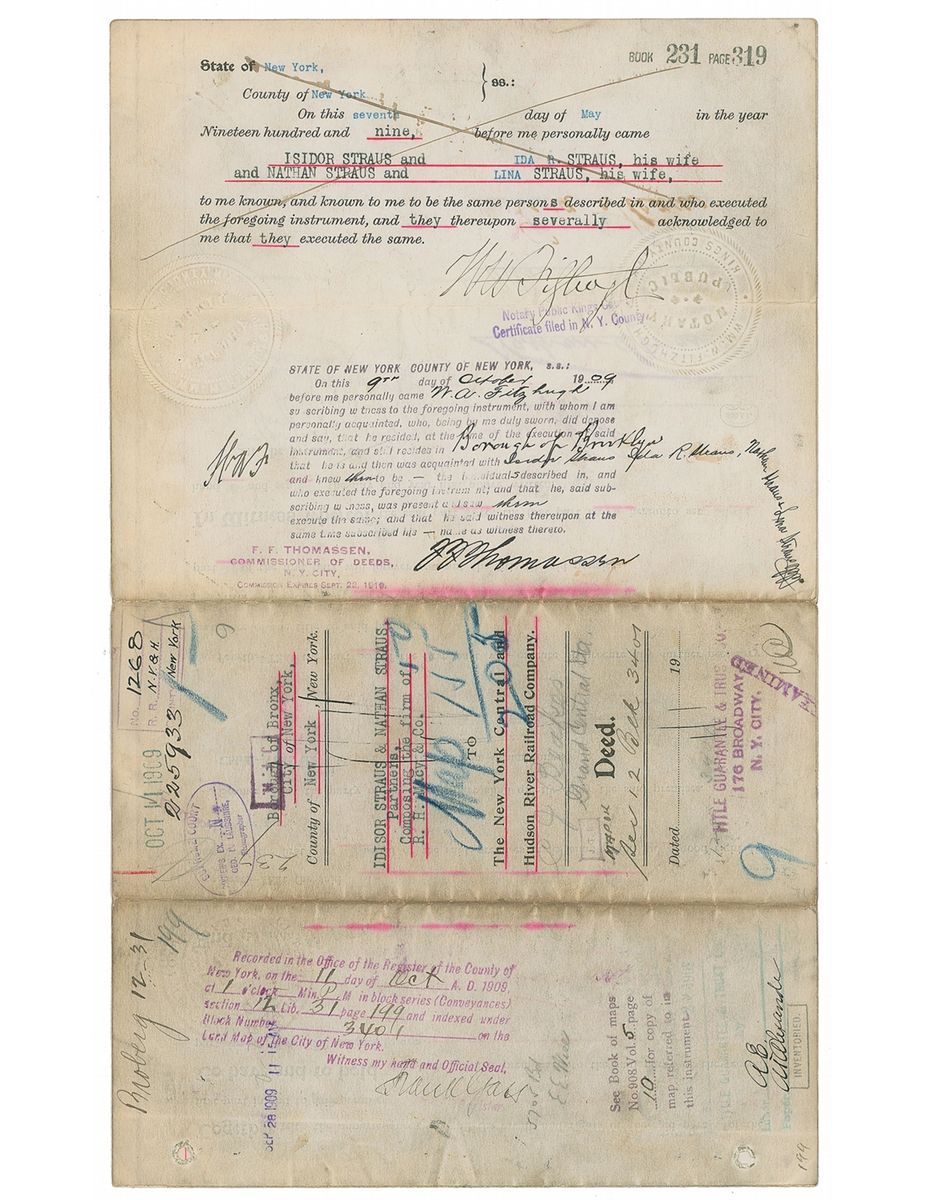 BOOK 231 PAGE 319
State of New York,
County of New York
ss.:
On this seventh day of May in the year
Nineteen hundred and nine, before me personally came
ISIDOR STRAUS and IDA R. STRAUS, his wife
and NATHAN STRAUS and LINA STRAUS, his wife,
to me known, and known to me to be the same persons described in and who executed
the foregoing instrument, and they thereupon severally acknowledged to
me that they executed the same.
Notary Public Kings County
Certificate filed in N. Y. County
NOTARY PUBLIC
KINGS COUNTY
STATE OF NEW YORK COUNTY OF NEW YORK, s.s.:
On this 9th day of October 1909
before me personally came W. A. Fitzhugh
subscribing witness to the foregoing instrument, with whom I am
personally acquainted, who, being by me duly sworn, did depose
and say, that he resided, at the time of the execution of said
instrument, and still resides in Borough of Brooklyn
that he is and then was acquainted with Isidor Straus Ida R. Straus, Nathan
and knew them to be — the individuals described in, and
who executed the foregoing instrument; and that he, said sub-
scribing witness, was present and saw them
execute the same; and that he said witness thereupon at the
same time subscribed his — name as witness thereto.
F. F. THOMASSEN,
COMMISSIONER OF DEEDS,
N. Y. CITY,
COMMISSION EXPIRES SEPT. 22, 1910.
F F Thomassen
No. 1268
R. R. N.Y. & H.
New York
OCT 11 1909
225933
Borough of Bronx,
City of New York,
County of New York, New York.
IDISOR STRAUS & NATHAN STRAUS
Partners,
Composing the firm of
R. H. Macy & Co.
Map
TO
The New York Central and
Hudson River Railroad Company.
Grand Central Sta.
Deed.
Sec 12 Bck 3401
Dated 19
TITLE GUARANTEE & TRUST CO.
176 BROADWAY
N. Y. CITY.
9
9
Broberg 12-31
199
Recorded in the Office of the Register of the County of
New York, on the 11 day of Oct A. D. 1909,
at 1 o'clock Min. P M in block series (Conveyances)
section 12 Lib. 31 page 199 and indexed under
Block Number 3401 on the
Land Map of the City of New York.
Witness my hand and Official Seal,
SEP 28 1909 11 15 AM
See Book of maps
No. 908 Vol. 5 page
10 for copy of
map referred to in
this instrument
INVENTORIED.
199